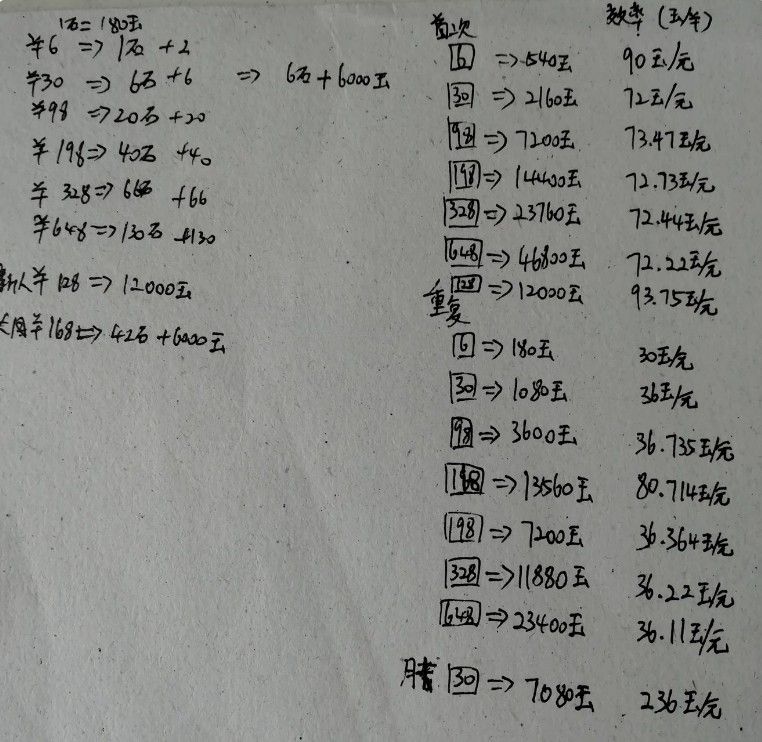 1石=180玉
¥6 => 1石 +2
¥30 => 6石+6 => 6石+6000玉
¥98 => 20石+20
¥198 => 40石 +40
¥328 => 66石 +66
¥648 => 130石 +130
新人¥128 => 12000玉
¥168 => 42石+6000玉
首次 效率(玉/¥)
6 => 540玉 90玉/元
30 => 2160玉 72玉/元
98 => 7200玉 73.47玉/元
198 => 14400玉 72.73玉/元
328 => 23760玉 72.44玉/元
648 => 46800玉 72.22玉/元
128 => 12000玉 93.75玉/元
重复
6 => 180玉 30玉/元
30 => 1080玉 36玉/元
98 => 3600玉 36.735玉/元
168 => 13560玉 80.714玉/元
198 => 7200玉 36.364玉/元
328 => 11880玉 36.22玉/元
648 => 23400玉 36.11玉/元
月 30 => 7080玉 236玉/元